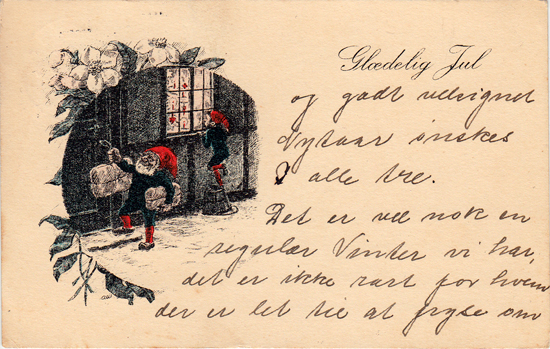 Glædelig Jul
og godt velsignet
Nytaar ønskes
alle tre.
Det er vel nok en
regulær Vinter vi har,
det er ikke rart for hvem
der er let til at fryse om